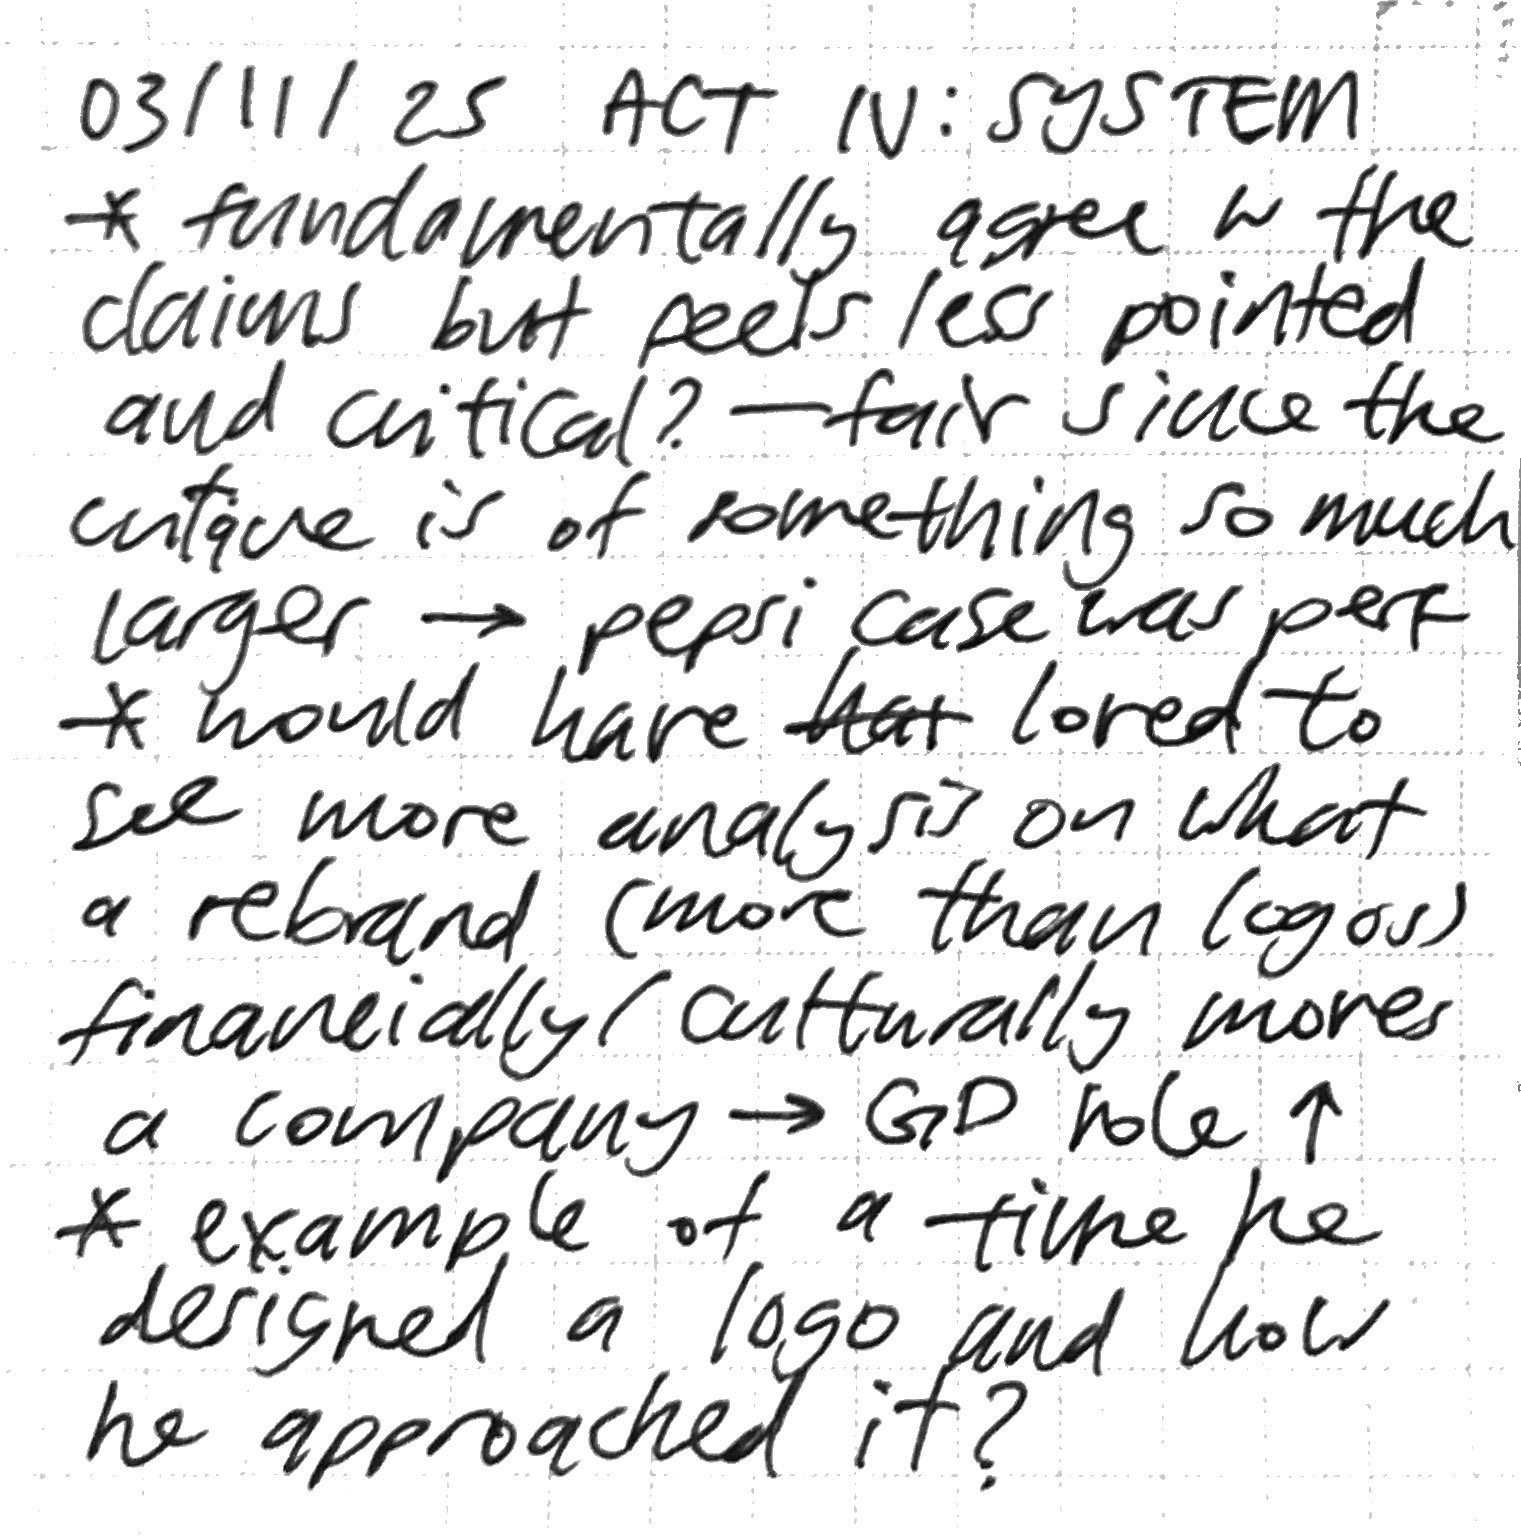 03/11/25 ACT IV: SYSTEM
* fundamentally agree w the
claims but feels less pointed
and critical? — fair since the
critique is of something so much
larger → pepsi case was perf
* would have hat loved to
see more analysis on what
a rebrand (more than logos)
financially/culturally moves
a company → GD role ↑
* example of a time he
designed a logo and how
he approached it?